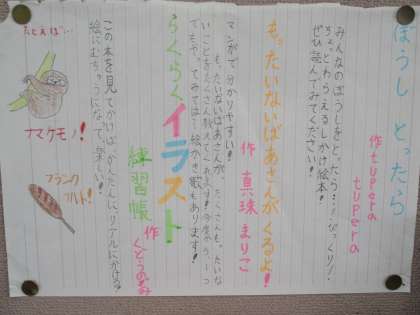 ぼうし とったら
作 tupera
tupera
みんなのぼうしをとったら…！びっくり！
ちょっとわらえるしかけ絵本！
ぜひ読んでみてください！
もったいないばあさんがくるよ！
作 真珠 まりこ
マンガで分かりやすい！
もったいないばあさんが、たくさんも、たいな
いことをたくさん教えてくれます！
てもや、てみては！絵かき歌もあります！
らくらくイラスト
練習帳
作 くどうのぞみ
この本を見てかけば、かんたんに、リアルにかける？
絵にむちゅうになって楽しい！
たとえば…
ナマケモノ！
フランク
フルト！